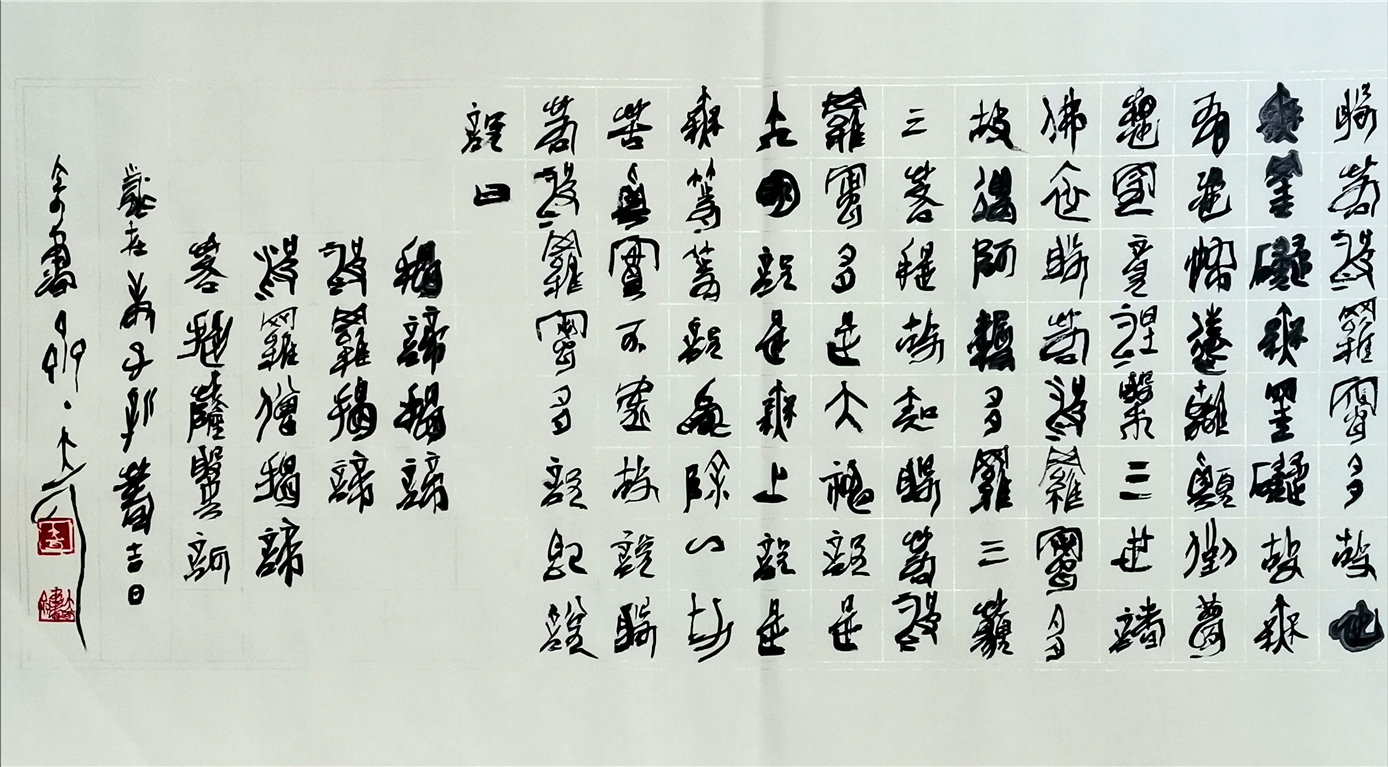 般若波羅蜜多故心
無罣礙無罣礙故無
有恐怖遠離顛倒夢
想究竟涅槃三世諸
佛依般若波羅蜜多
故得阿耨多羅三藐
三菩提故知般若波
羅蜜多是大神咒是
大明咒是無上咒是
無等等咒能除一切
苦真實不虛故說般
若波羅蜜多咒即說
咒曰
揭諦揭諦
波羅揭諦
波羅僧揭諦
菩提薩婆訶
歲在子書吉日